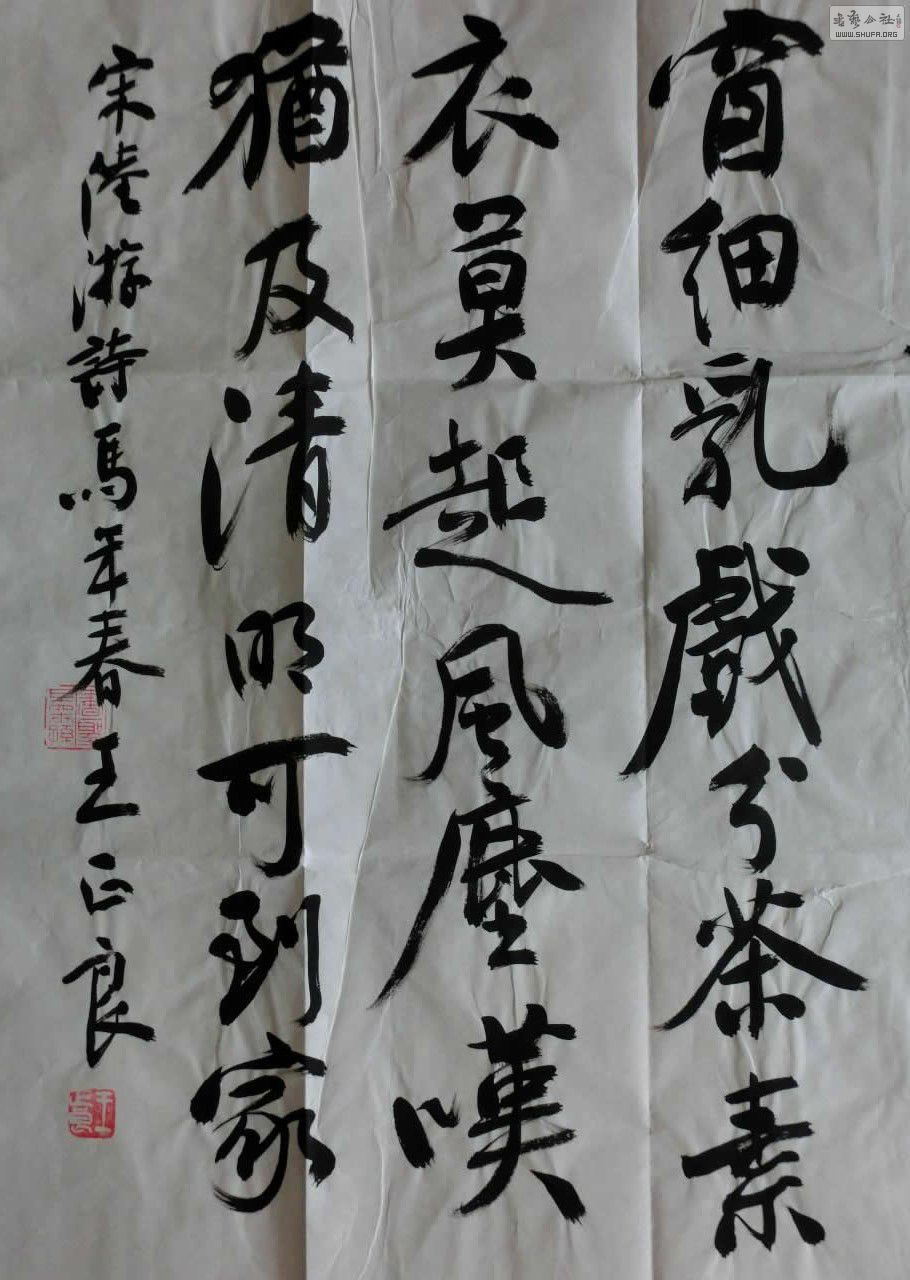 窗細乳戲分茶素
衣莫起風塵嘆
猶及清明可到家
宋陸游詩馬年春王正良
書藝公社
WWW.SHUFA.ORG